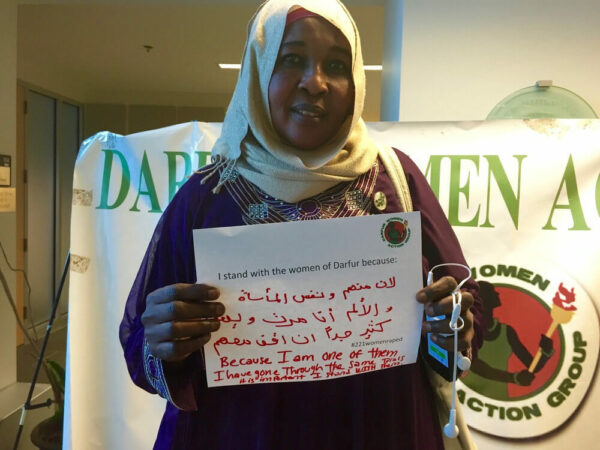 DAR MEN AC
I stand with the women of Darfur because:
لان منهم ونفس المأساة
و الألم أنا مرت
كثير جداً ان اقف معهم
#221womenraped
Because I am one of them
I have gone Through the same
it is important I stand with them
WOMEN
ACTION GROUP